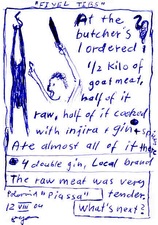 "FIVEL TIBS"
At the
butcher's
I ordered:
1/2 kilo of
goat meat,
half of it
raw, half of it cooked
with injira + gin
Ate almost all of it there
4 double gin, Local brand
The raw meat was very
"Piassa" tender.
12 VIII 04
What's next?